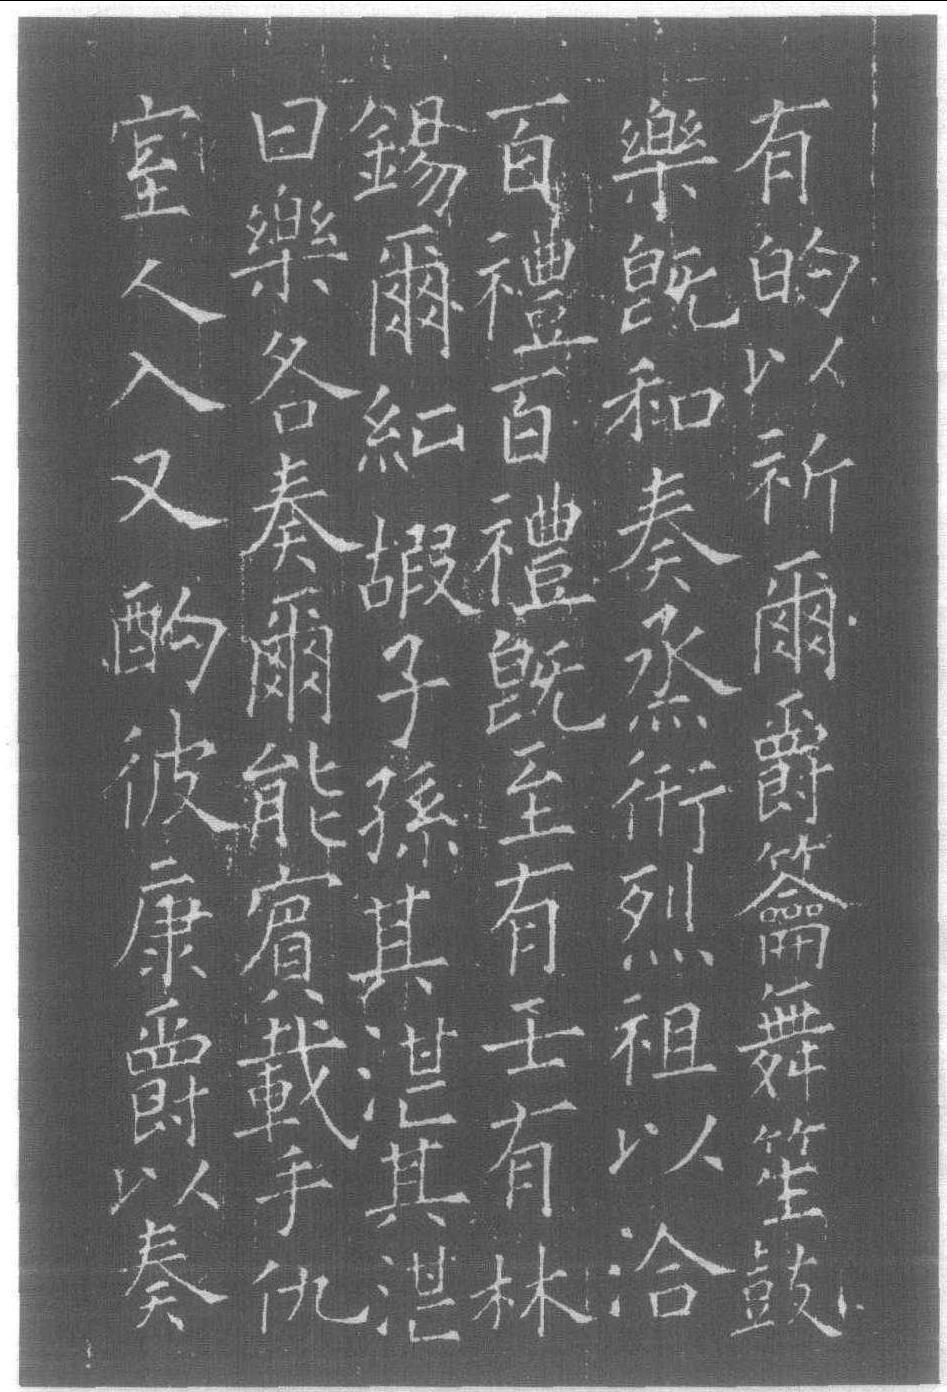 有的以祈爾爵籥舞笙鼓
樂既和奏烝衎烈祖以洽
百禮百禮既至有壬有林
錫爾純嘏子孫其湛其湛
曰樂各奏爾能賓載手仇
室人入又酌彼康爵以奏